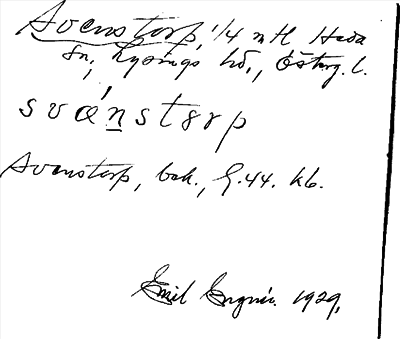 Svenstorp, 1/4 mtl Heda
sn, Lysings hd., Österg. l.
svǽn̲störp
Svenstorp, bok., G.44. kb.
Emil 1929.